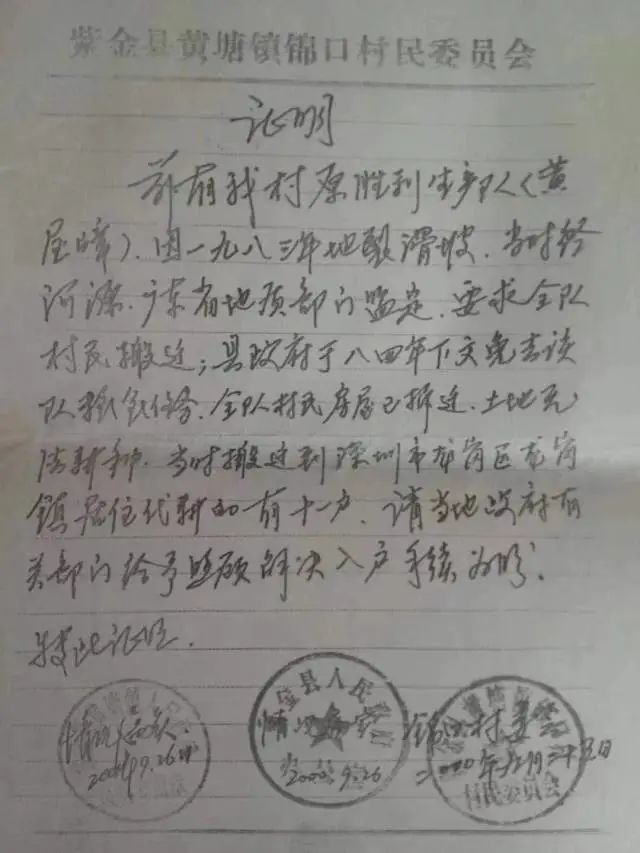 紫金县黄塘镇锦口村民委员会
证明
兹有我村原胜利生产队(黄
屋嶂)、因一九八三年地裂滑坡、当时经
河源、广东省地质部门鉴定、要求全队
村民搬迁；县政府于八四年下文免去该
队粮食任务、全队村民房屋已拆迁、土地无
法耕种、当时搬迁到深圳市龙岗区龙岗
镇居住代耕的有十一户、请当地政府有
关部门给予照顾解决入户手续为盼、
特此证明.
情况属实
9.26
金县人民
情况属实
2000.9.26
锦口村委会
二000年九月二十五日
村民委员会